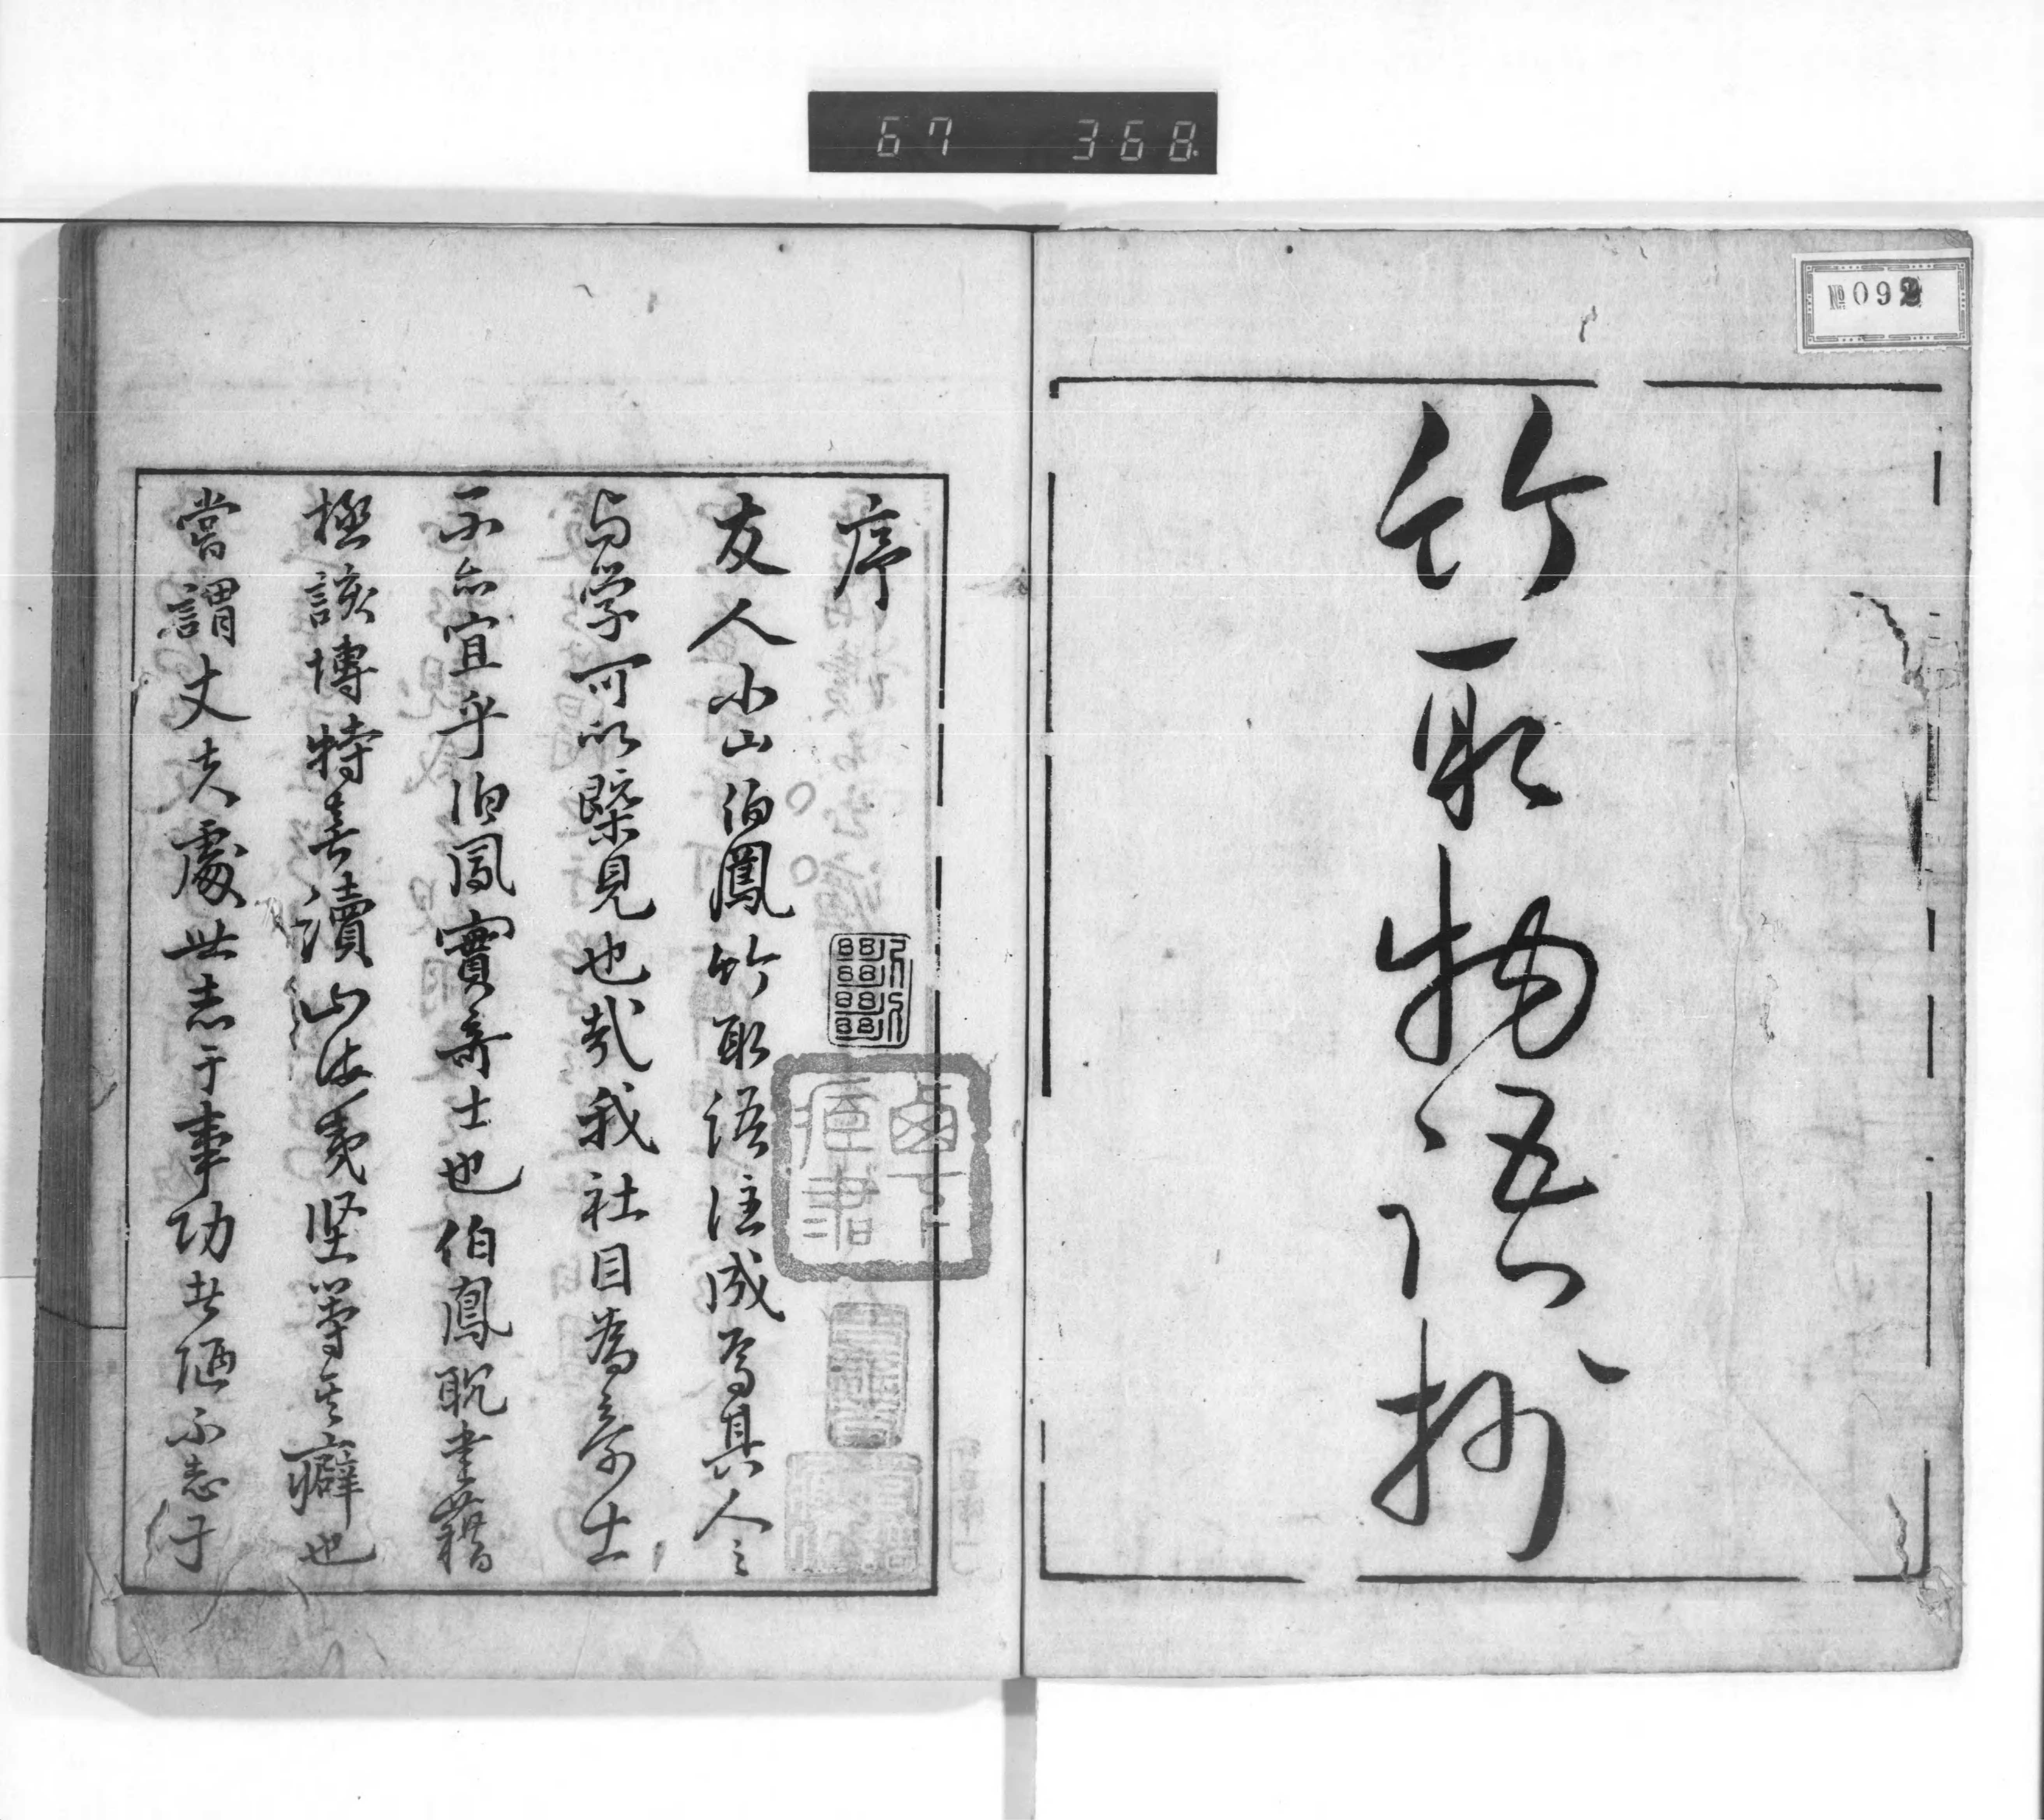 67 368
№092
竹取物語抄
序
友人小山伯鳳竹取語注成為其人与
与学可以槩見也哉我社目為奇士
不亦宜乎伯鳳實奇士也伯鳳耽書藉
極該博特喜讀山海夷堅等其癖也
嘗謂丈夫處世志于事功苟陋不志于